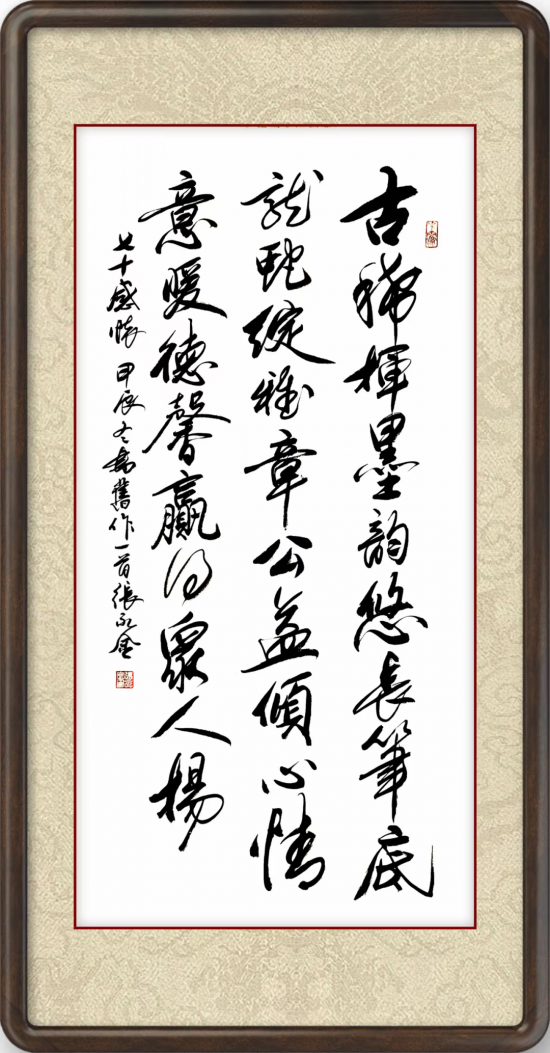 古稀揮墨韵悠長筆底
龍蛇綻雅章公益傾心情
意暖德馨贏得眾人揚
七十感怀 甲辰冬 舊作一首 張永金